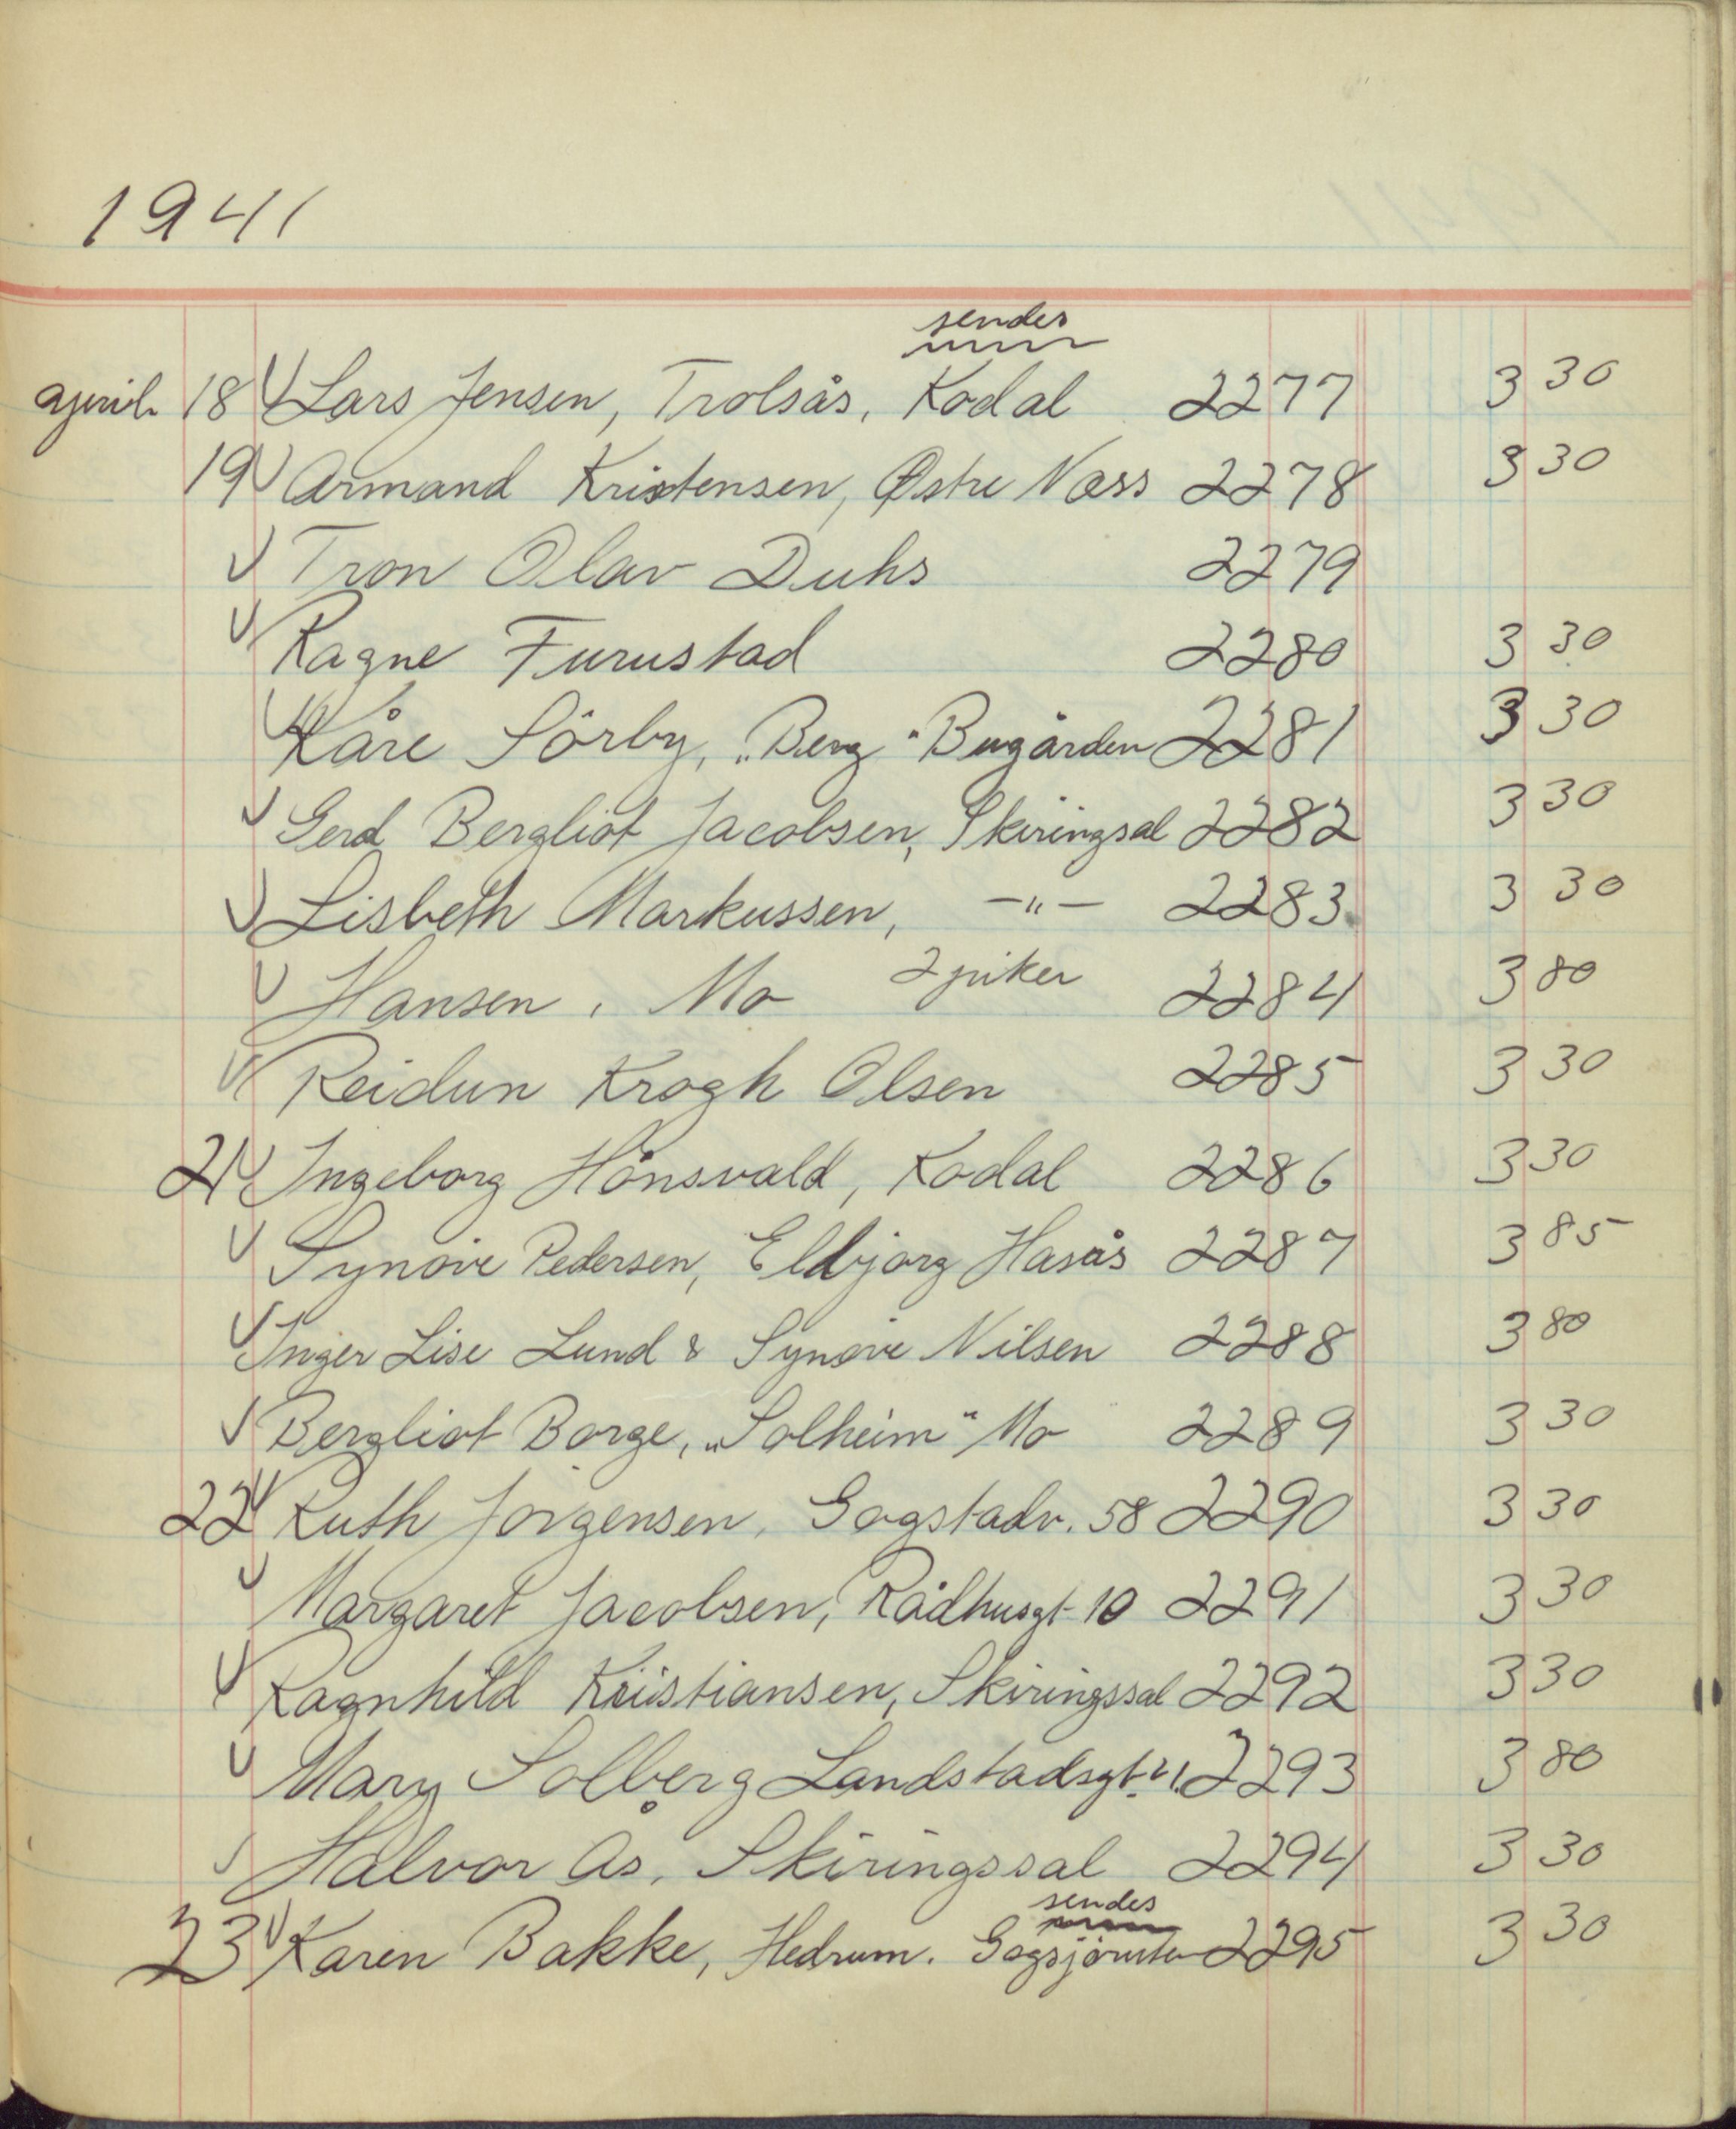 1941
sendes
april. 18 Lars Jensen, Trolsås, Kodal 2277 3 30
19 Armand Kristensen, Østre Næss 2278 3 30
Tron Olav Duhs 2279
Ragne Furustad 2280 3 30
Kåre Sörby, „Berg" Bugården 2281 3 30
Gerd Bergliot Jacobsen, Skiringsal 2282 3 30
Lisbeth Markussen, -„- 2283 3 30
Hansen, Mo 2 piker 2284 3 80
Reidun Krogh Olsen 2285 3 30
21 Ingeborg Hånsvald, Kodal 2286 3 30
Synøve Pedersen, Eldbjørg Hasås 2287 3 85
Inger Lise Lund & Synøve Nilsen 2288 3 80
Bergliot Borge, „Solheim" Mo 2289 3 30
22 Ruth Jørgensen, Gogstadv. 58 2290 3 30
Margaret Jacobsen, Rådhusgt 10 2291 3 30
Ragnhild Kristiansen, Skiringssal 2292 3 30
Mary Solberg Landstadsgt. 21. 2293 3 80
Halvor Ås, Skiringssal 2294 3 30
sendes
23 Karen Bakke, Hedrum. 2295 3 30